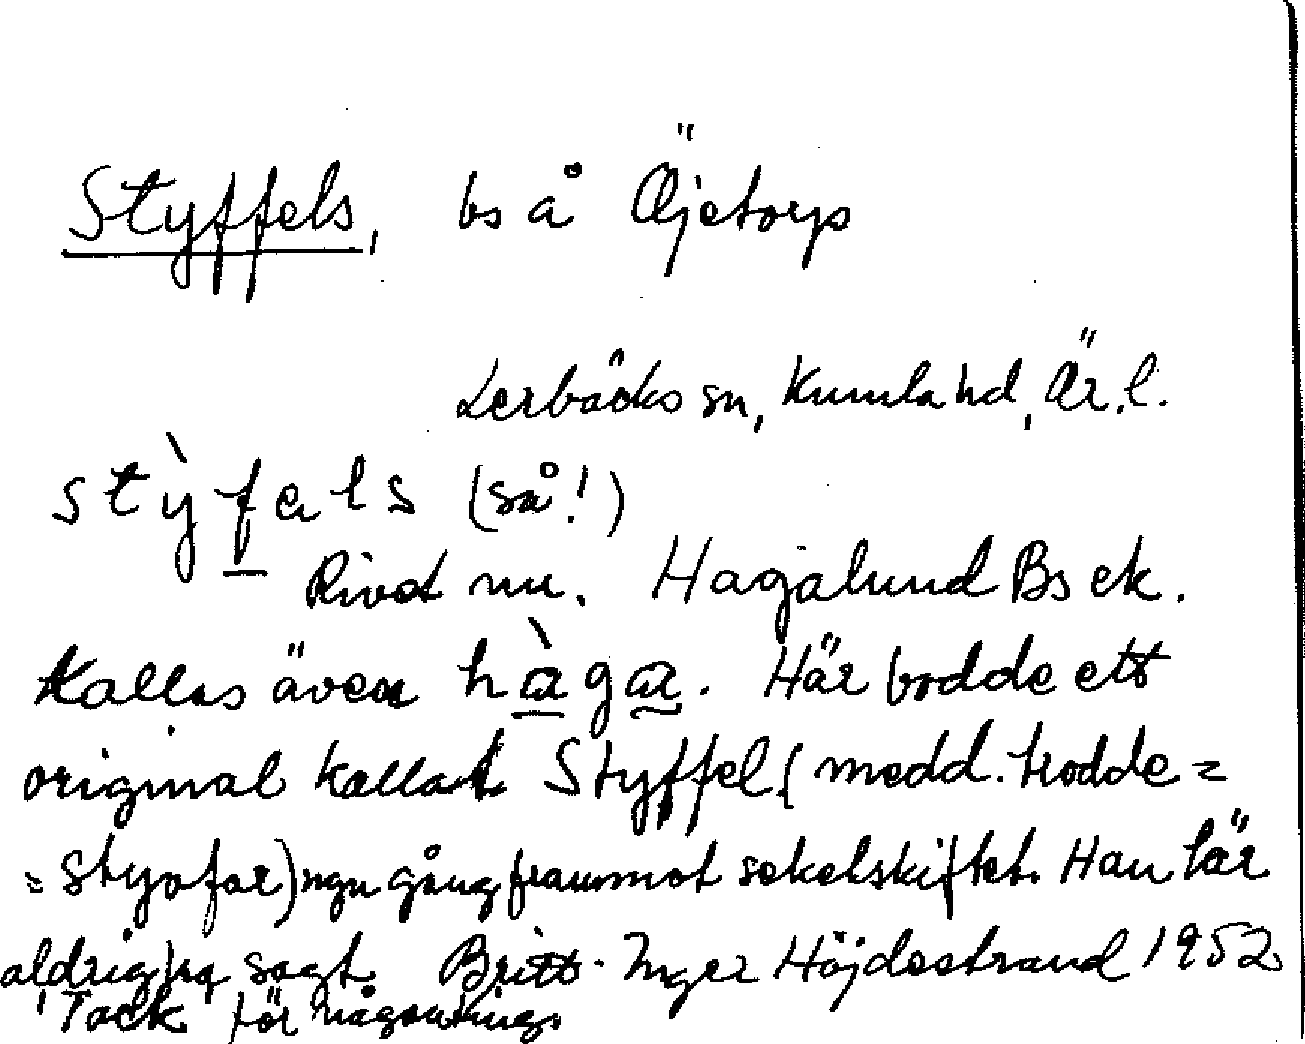 Styffels, bs å Öjetorp
Lerbäcks sn, Kumla hd, Är. l.
stỳfals (så!)
Rivet nu. Hagalund Bs ek.
Kallas även hàga. Här bodde ett
original kallat Styffel (medd. trodde =
= styvfar) ngn gång frammot sekelskiftet. Han lär
aldrig ha sagt Britt-Inger Höjdestrand 1952
"Tack" för någonting.